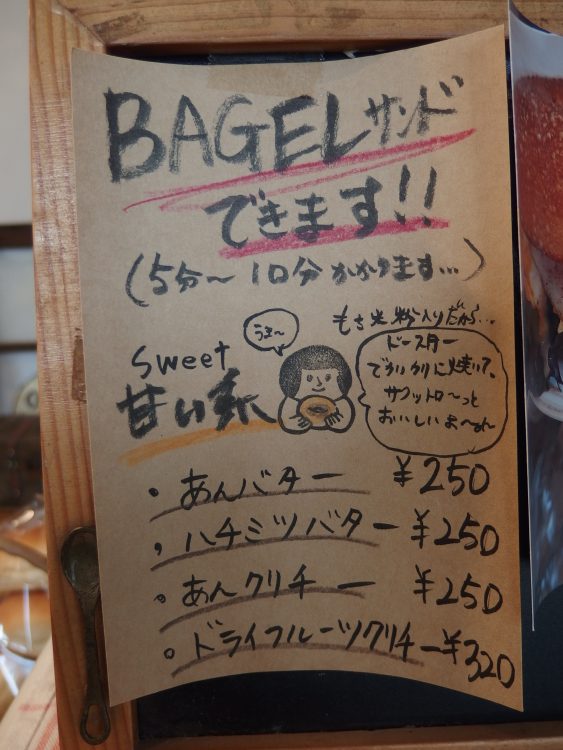 BAGELサンド
できます!!
(5分〜10分かかります…)
うま〜
もち米粉入りだから…
sweet
甘い系
トースター
でカリカリに焼いて、
サクットロ〜っと
おいしいよ〜ん
・あんバター ¥250
・ハチミツバター ¥250
・あんクリチー ¥250
・ドライフルーツクリチー ¥320